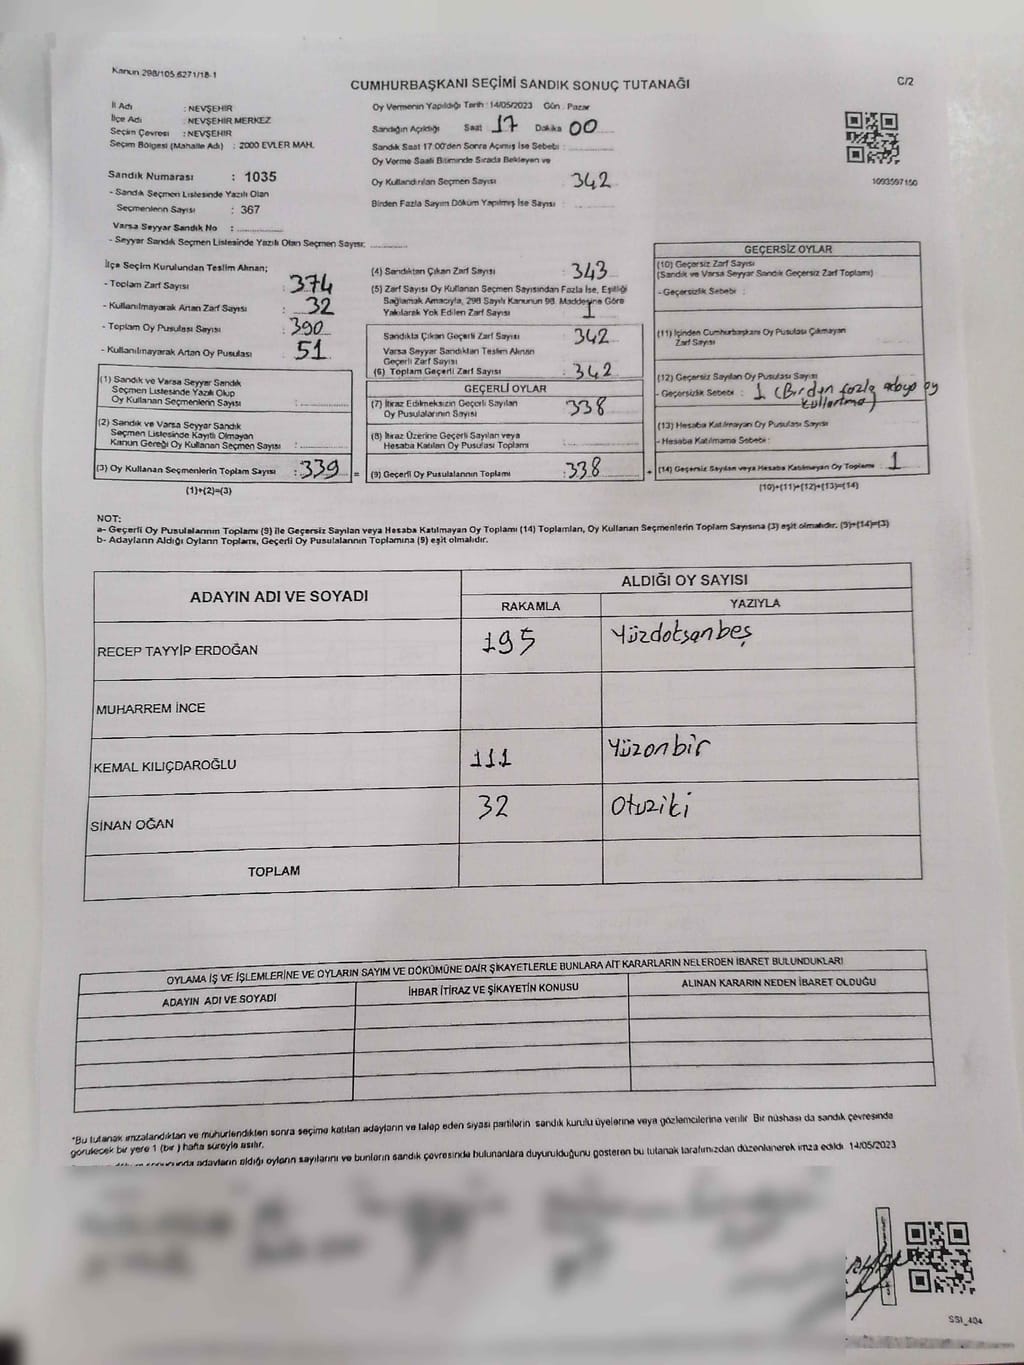 Kanun 298/105,6271/18-1
CUMHURBAŞKANI SEÇİMİ SANDIK SONUÇ TUTANAĞI
C/2
İl Adı : NEVŞEHİR
İlçe Adı : NEVŞEHİR MERKEZ
Seçim Çevresi : NEVŞEHİR
Seçim Bölgesi (Mahalle Adı) : 2000 EVLER MAH.
Sandık Numarası : 1035
- Sandık Seçmen Listesinde Yazılı Olan
Seçmenlerin Sayısı : 367
Varsa Seyyar Sandık No :
- Seyyar Sandık Seçmen Listesinde Yazılı Olan Seçmen Sayısı:
Oy Vermenin Yapıldığı Tarih : 14/05/2023 Gün : Pazar
Sandığın Açıldığı Saat 17 Dakika 00
Sandık Saat 17:00'den Sonra Açımış İse Sebebi :
Oy Verme Saati Bitiminde Sırada Bekleyen ve
Oy Kullandırılan Seçmen Sayısı 342
Birden Fazla Sayım Döküm Yapılmış İse Sayısı :
1093597150
İlçe Seçim Kurulundan Teslim Alınan;
- Toplam Zarf Sayısı : 374
- Kullanılmayarak Artan Zarf Sayısı : 32
- Toplam Oy Pusulası Sayısı : 390
- Kullanılmayarak Artan Oy Pusulası : 51
(1) Sandık ve Varsa Seyyar Sandık
Seçmen Listesinde Yazılı Olup
Oy Kullanan Seçmenlerin Sayısı :
(2) Sandık ve Varsa Seyyar Sandık
Seçmen Listesinde Kayıtlı Olmayan
Kanun Gereği Oy Kullanan Seçmen Sayısı :
(3) Oy Kullanan Seçmenlerin Toplam Sayısı : 339 =
(1)+(2)=(3)
(4) Sandıktan Çıkan Zarf Sayısı : 343
(5) Zarf Sayısı Oy Kullanan Seçmen Sayısından Fazla İse, Eşitliği
Sağlamak Amacıyla, 298 Sayılı Kanunun 98. Maddesine Göre
Yakılarak Yok Edilen Zarf Sayısı : 1
Sandıkta Çıkan Geçerli Zarf Sayısı : 342
Varsa Seyyar Sandıktan Teslim Alınan
Geçerli Zarf Sayısı
(6) Toplam Geçerli Zarf Sayısı : 342
GEÇERLİ OYLAR
(7) İtiraz Edilmeksizin Geçerli Sayılan
Oy Pusulalarının Sayısı : 338
(8) İtiraz Üzerine Geçerli Sayılan veya
Hesaba Katılan Oy Pusulası Toplamı :
(9) Geçerli Oy Pusulalarının Toplamı : 338 +
GEÇERSİZ OYLAR
(10) Geçersiz Zarf Sayısı
(Sandık ve Varsa Seyyar Sandık Geçersiz Zarf Toplamı)
- Geçersizlik Sebebi :
(11) İçinden Cumhurbaşkanı Oy Pusulası Çıkmayan
Zarf Sayısı
(12) Geçersiz Sayılan Oy Pusulası Sayısı
- Geçersizlik Sebebi : 1 (Birden fazla adaya oy
kullanma)
(13) Hesaba Katılmayan Oy Pusulası Sayısı
- Hesaba Katılmama Sebebi :
(14) Geçersiz Sayılan veya Hesaba Katılmayan Oy Toplamı : 1
(10)+(11)+(12)+(13)=(14)
NOT:
a- Geçerli Oy Pusulalarının Toplamı (9) ile Geçersiz Sayılan veya Hesaba Katılmayan Oy Toplamı (14) Toplamları, Oy Kullanan Seçmenlerin Toplam Sayısına (3) eşit olmalıdır. (9)+(14)=(3)
b- Adayların Aldığı Oyların Toplamı, Geçerli Oy Pusulalarının Toplamına (9) eşit olmalıdır.
ADAYIN ADI VE SOYADI
ALDIĞI OY SAYISI
RAKAMLA YAZIYLA
RECEP TAYYİP ERDOĞAN 195 Yüzdoksanbeş
MUHARREM İNCE
KEMAL KILIÇDAROĞLU 111 Yüzonbir
SİNAN OĞAN 32 Otuziki
TOPLAM
OYLAMA İŞ VE İŞLEMLERİNE VE OYLARIN SAYIM VE DÖKÜMÜNE DAİR ŞİKAYETLERLE BUNLARA AİT KARARLARIN NELERDEN İBARET BULUNDUKLARI
ADAYIN ADI VE SOYADI İHBAR İTİRAZ VE ŞİKAYETİN KONUSU ALINAN KARARIN NEDEN İBARET OLDUĞU
*Bu tutanak imzalandıktan ve mühürlendikten sonra seçime katılan adayların ve talep eden siyasi partilerin sandık kurulu üyelerine veya gözlemcilerine verilir. Bir nüshası da sandık çevresinde
görülecek bir yere 1 (bir ) hafta süreyle asılır.
adayların aldığı oyların sayılarını ve bunların sandık çevresinde bulunanlara duyurulduğunu gösteren bu tutanak tarafımızdan düzenlenerek imza edildi. 14/05/2023
SSI_404